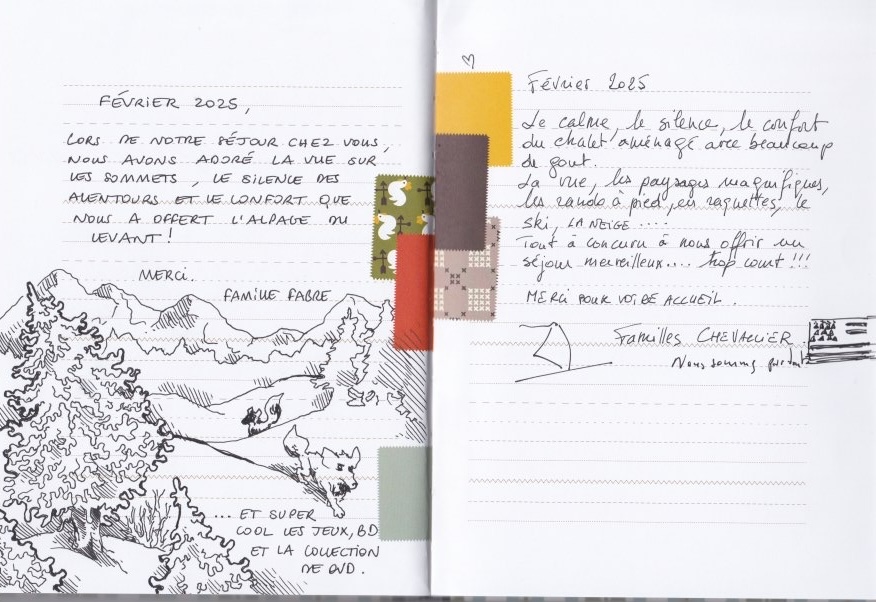 FÉVRIER 2025,
LORS DE NOTRE SÉJOUR CHEZ VOUS,
NOUS AVONS ADORÉ LA VUE SUR
LES SOMMETS, LE SILENCE DES
ALENTOURS ET LE CONFORT QUE
NOUS A OFFERT L'ALPAGE DU
LEVANT!
MERCI.
FAMILLE FABRE
... ET SUPER
COOL LES JEUX, BD
ET LA COLLECTION
DE DVD.
Février 2025
Le calme, le silence, le confort
du chalet aménagé avec beaucoup
de gout.
La vue, les paysages magnifiques,
les rando à pied, en raquettes, le
ski, LA NEIGE ....
Tout à concouru à nous offrir un
séjour merveilleux.... trop court!!!
MERCI POUR VOTRE ACCUEIL.
Familles CHEVALLIER.
Nous sommes